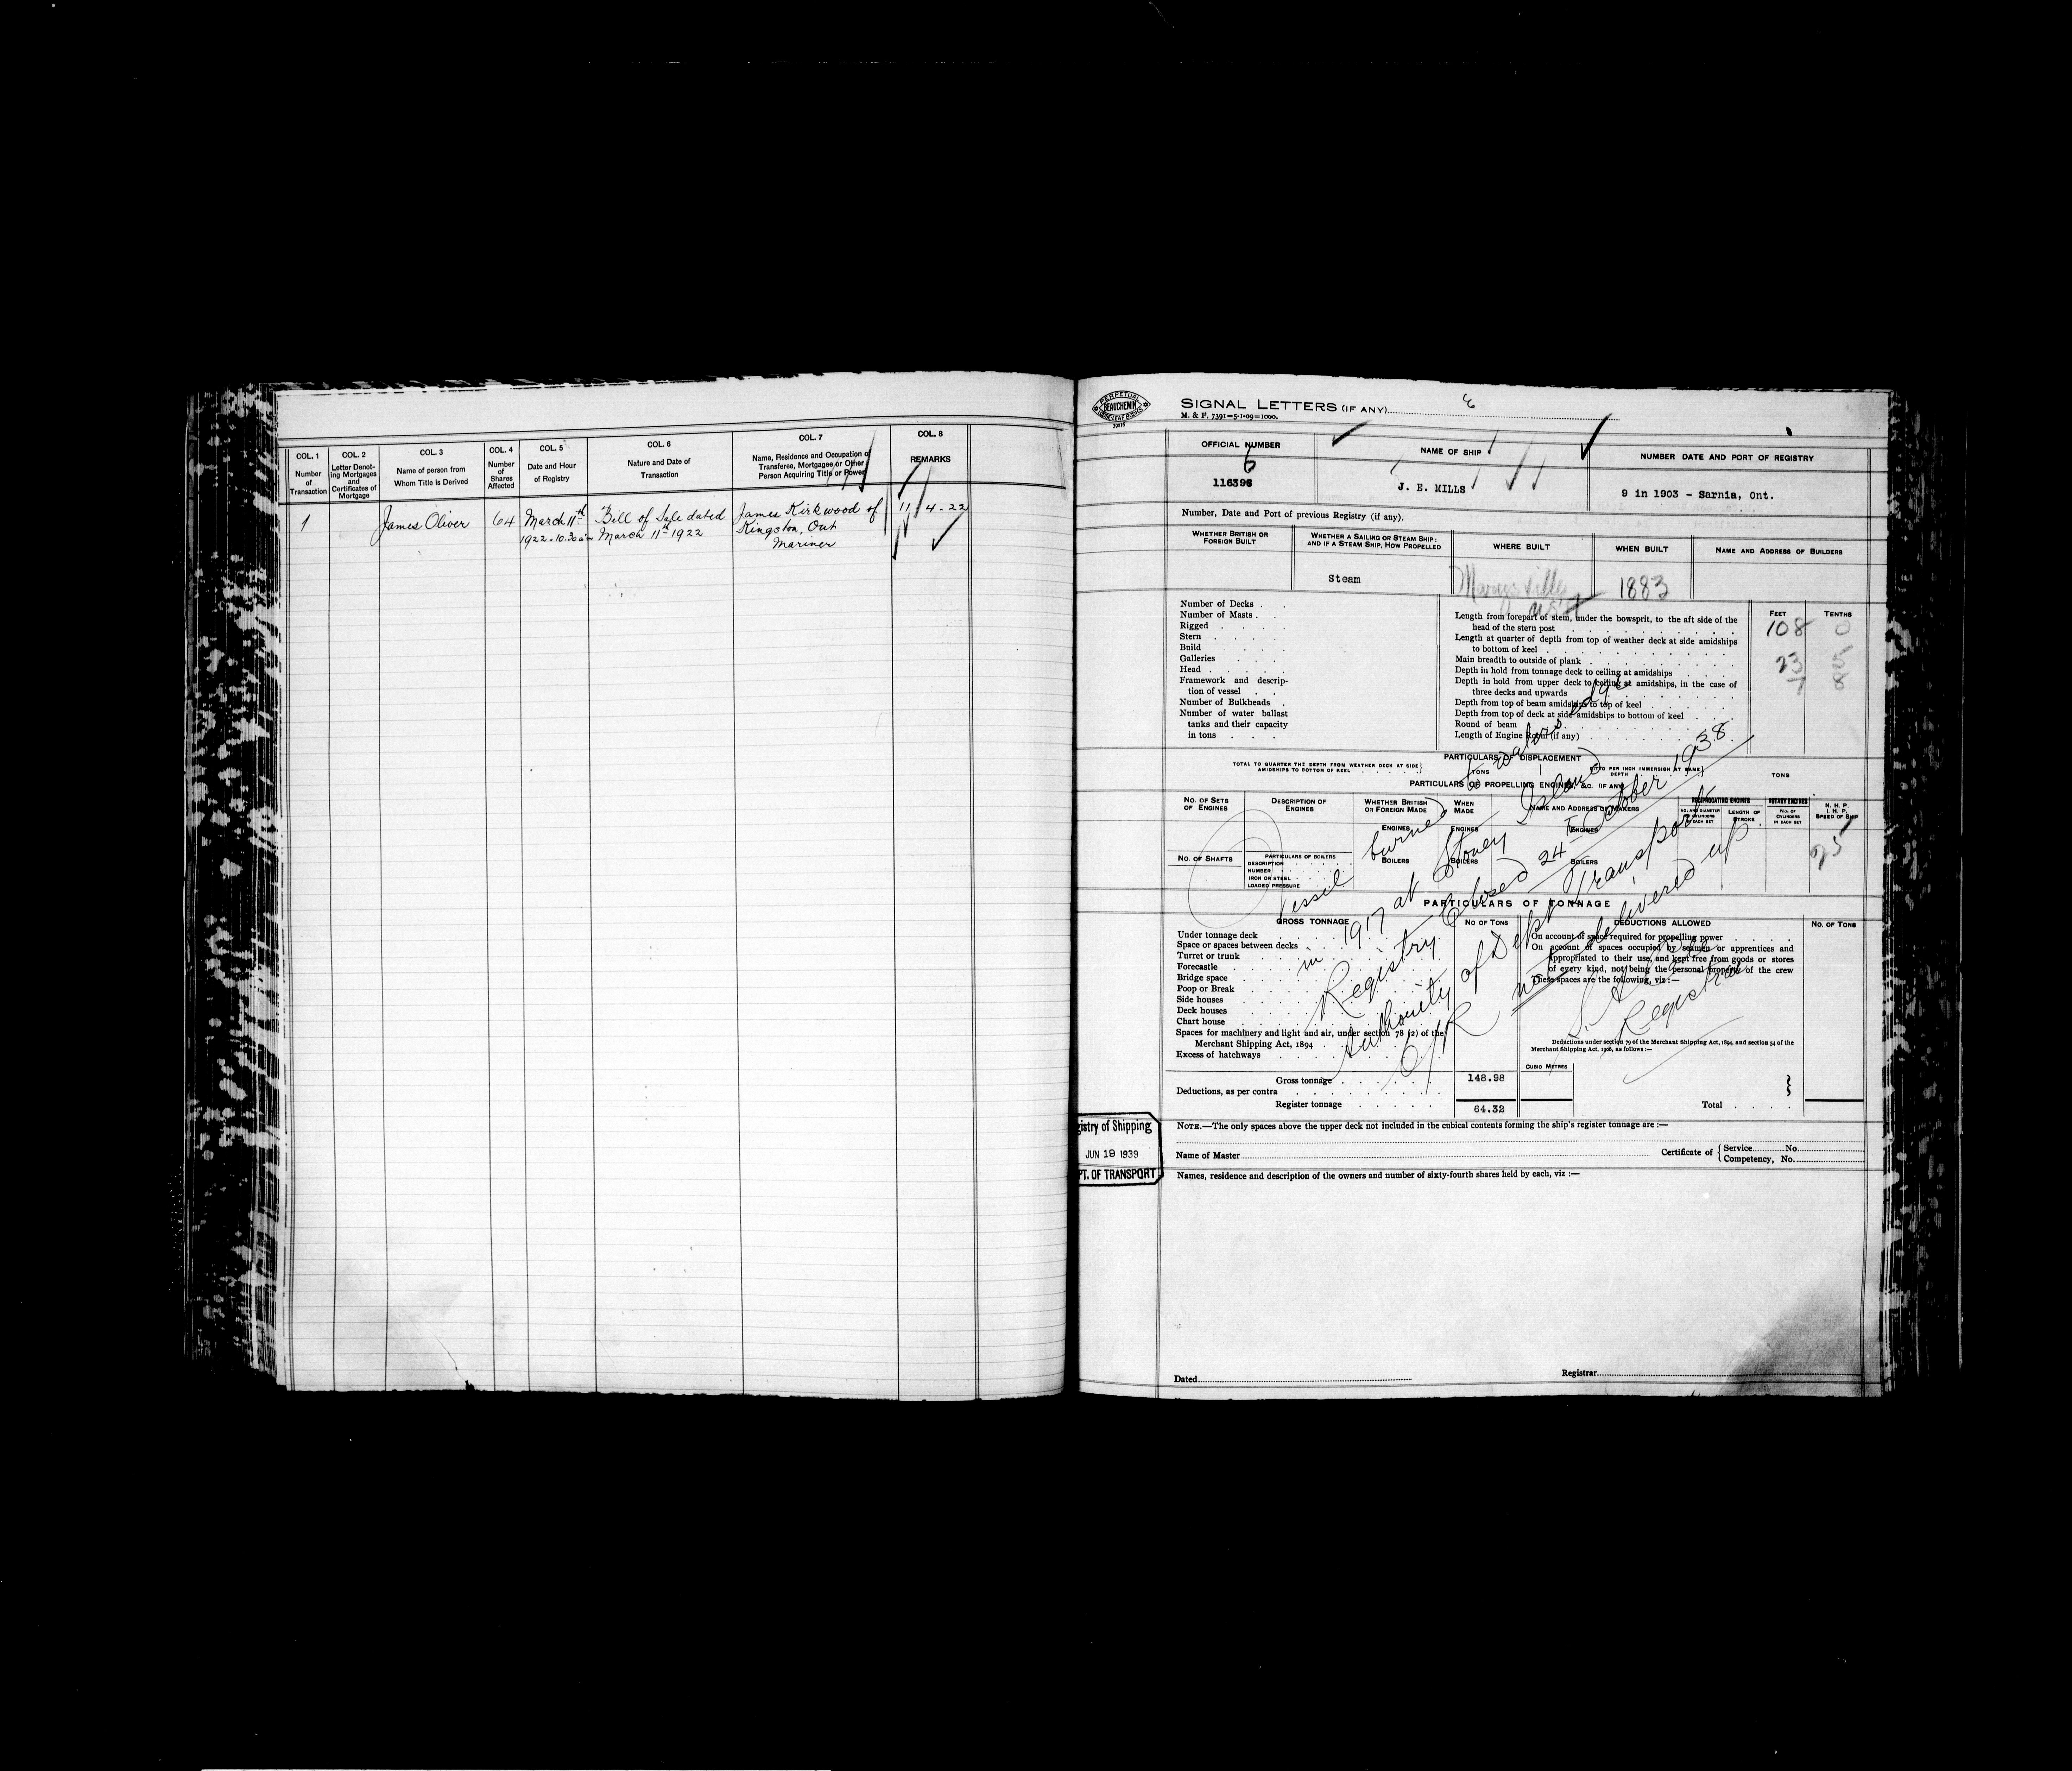 COL. 1
Number
of
Transaction
COL. 2
Letter Denot-
ing Mortgages
and
Certificates of
Mortgage
COL. 3
Name of person from
Whom Title is Derived
COL. 4
Number
of
Shares
Affected
COL. 5
Date and Hour
of Registry
COL. 6
Nature and Date of
Transaction
COL. 7
Name, Residence and Occupation of
Transferee, Mortgagee or Other
Person Acquiring Title or Power
COL. 8
REMARKS
1
James Oliver
64
March 11th
1922 10.30 a.m
Bill of Sale dated
March 11th 1922
James Kirkwood of
Kingston, Ont
Mariner
11/4-22
PERPETUAL
BEAUCHEMIN
LOOSE LEAF BOOKS
SIGNAL LETTERS (IF ANY)
M. & F. 7391=5-1-09=1000.
OFFICIAL NUMBER
6
116396
NAME OF SHIP
J. E. MILLS
NUMBER DATE AND PORT OF REGISTRY
9 in 1903 - Sarnia, Ont.
Number, Date and Port of previous Registry (if any).
WHETHER BRITISH OR
FOREIGN BUILT
WHETHER A SAILING OR STEAM SHIP;
AND IF A STEAM SHIP, HOW PROPELLED
WHERE BUILT
WHEN BUILT
NAME AND ADDRESS OF BUILDERS
Steam
Marysville
1883
Number of Decks
Number of Masts
Rigged
Stern
Build
Galleries
Head
Framework and descrip-
tion of vessel
Number of Bulkheads
Number of water ballast
tanks and their capacity
in tons
Length from forepart of stem, under the bowsprit, to the aft side of the
head of the stern post
Length at quarter of depth from top of weather deck at side amidships
to bottom of keel
Main breadth to outside of plank
Depth in hold from tonnage deck to ceiling at amidships
Depth in hold from upper deck to ceiling at amidships, in the case of
three decks and upwards
Depth from top of beam amidships to top of keel
Depth from top of deck at side amidships to bottom of keel
Round of beam
Length of Engine Room (if any)
FEET
TENTHS
108 0
23
7 8
PARTICULARS OF DISPLACEMENT
TOTAL TO QUARTER THE DEPTH FROM WEATHER DECK AT SIDE
AMIDSHIPS TO BOTTOM OF KEEL
TONS
DITTO PER INCH IMMERSION AT SAME
DEPTH
TONS
PARTICULARS OF PROPELLING ENGINES, &C. (IF ANY)
NO. OF SETS
OF ENGINES
DESCRIPTION OF
ENGINES
WHETHER BRITISH
OR FOREIGN MADE
WHEN
MADE
NAME AND ADDRESS OF MAKERS
RECIPROCATING ENGINES
NO. AND DIAMETER
OF CYLINDERS
IN EACH SET
LENGTH OF
STROKE
ROTARY ENGINES
NO. OF
CYLINDERS
IN EACH SET
N. H. P.
I. H. P.
SPEED OF SHIP
ENGINES
ENGINES
ENGINES
NO. OF SHAFTS
PARTICULARS OF BOILERS
DESCRIPTION
NUMBER
IRON OR STEEL
LOADED PRESSURE
BOILERS
BOILERS
BOILERS
Vessel burned to waters edge
in 1917 at Stoney Island
Registry Closed 24th October 1938
Authority of Dept Transport
C/R not delivered up
Registrar
PARTICULARS OF TONNAGE
GROSS TONNAGE
NO OF TONS
DEDUCTIONS ALLOWED
NO. OF TONS
Under tonnage deck
Space or spaces between decks
Turret or trunk
Forecastle
Bridge space
Poop or Break
Side houses
Deck houses
Chart house
Spaces for machinery and light and air, under section 78 (2) of the
Merchant Shipping Act, 1894
Excess of hatchways
On account of space required for propelling power
On account of spaces occupied by seamen or apprentices and
appropriated to their use, and kept free from goods or stores
of every kind, not being the personal property of the crew
These spaces are the following, viz:—
Deductions under section 79 of the Merchant Shipping Act, 1894, and section 54 of the
Merchant Shipping Act, 1906, as follows:—
CUBIC METRES
Gross tonnage
148.98
Deductions, as per contra
Register tonnage
64.32
Total
NOTE.—The only spaces above the upper deck not included in the cubical contents forming the ship's register tonnage are :—
Name of Master
Certificate of
Service No.
Competency, No.
Names, residence and description of the owners and number of sixty-fourth shares held by each, viz :—
gistry of Shipping
JUN 19 1939
PT. OF TRANSPORT
Dated
Registrar